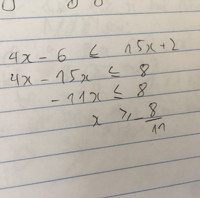 4x - 6 ≤ 15x + 2
4x - 15x ≤ 8
- 11x ≤ 8
x ≥ - 8/11